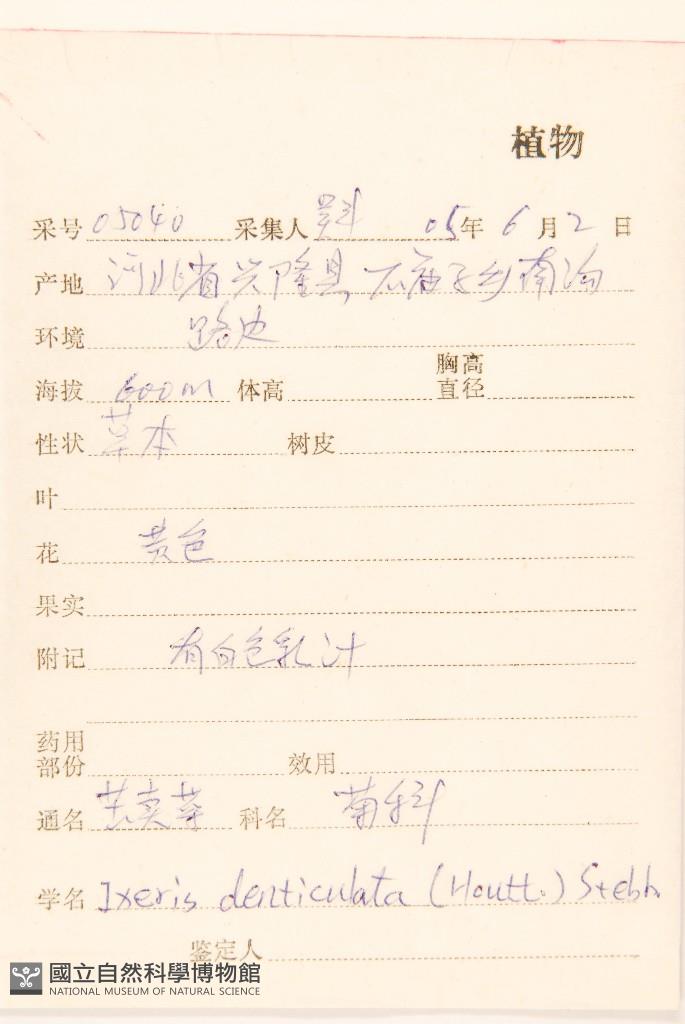 植物
采号 05040 采集人 05年 6月2日
产地 河北省兴隆县石庙子乡南沟
环境 路边
海拔 600m 体高 胸高直径
性状 草本 树皮
叶
花 黄色
果实
附记 有白色乳汁
药用部份 效用
通名 苦荬菜 科名 菊科
学名 Ixeris denticulata (Houtt.) Stebb.
鉴定人
國立自然科學博物館
NATIONAL MUSEUM OF NATURAL SCIENCE